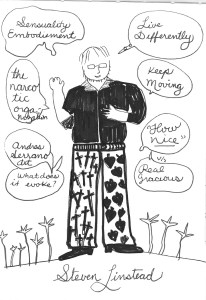 Sensuality
Embodiment
Live
Differently
the
narco
tic
orga-
nization
Keep
Moving
Andres
Serrano
art
What does
it evoke?
"How
nice"
vs
Real
Gracious
Steven Linstead